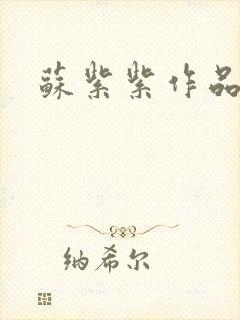 蘇紫紫作品
纳希尔